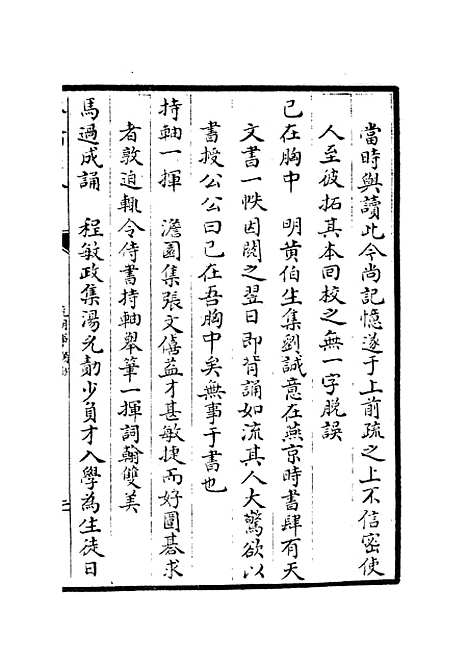 當時與讀此今尚記憶遂于上前疏之上不信密使
人至彼拓其本回校之無一字脫誤
已在胸中　明黄伯生集劉誠意在燕京時書肆有天
文書一帙因閱之翌日即背誦如流其人大驚欲以
書授公公曰已在吾胸中矣無事于書也
持軸一揮　澹園集張文僖益才甚敏捷而好圍棊求
者敦迫輒令侍書持軸舉筆一揮詞翰雙美
馬過成誦　程敏政集湯允勣少負才入學為生徒日